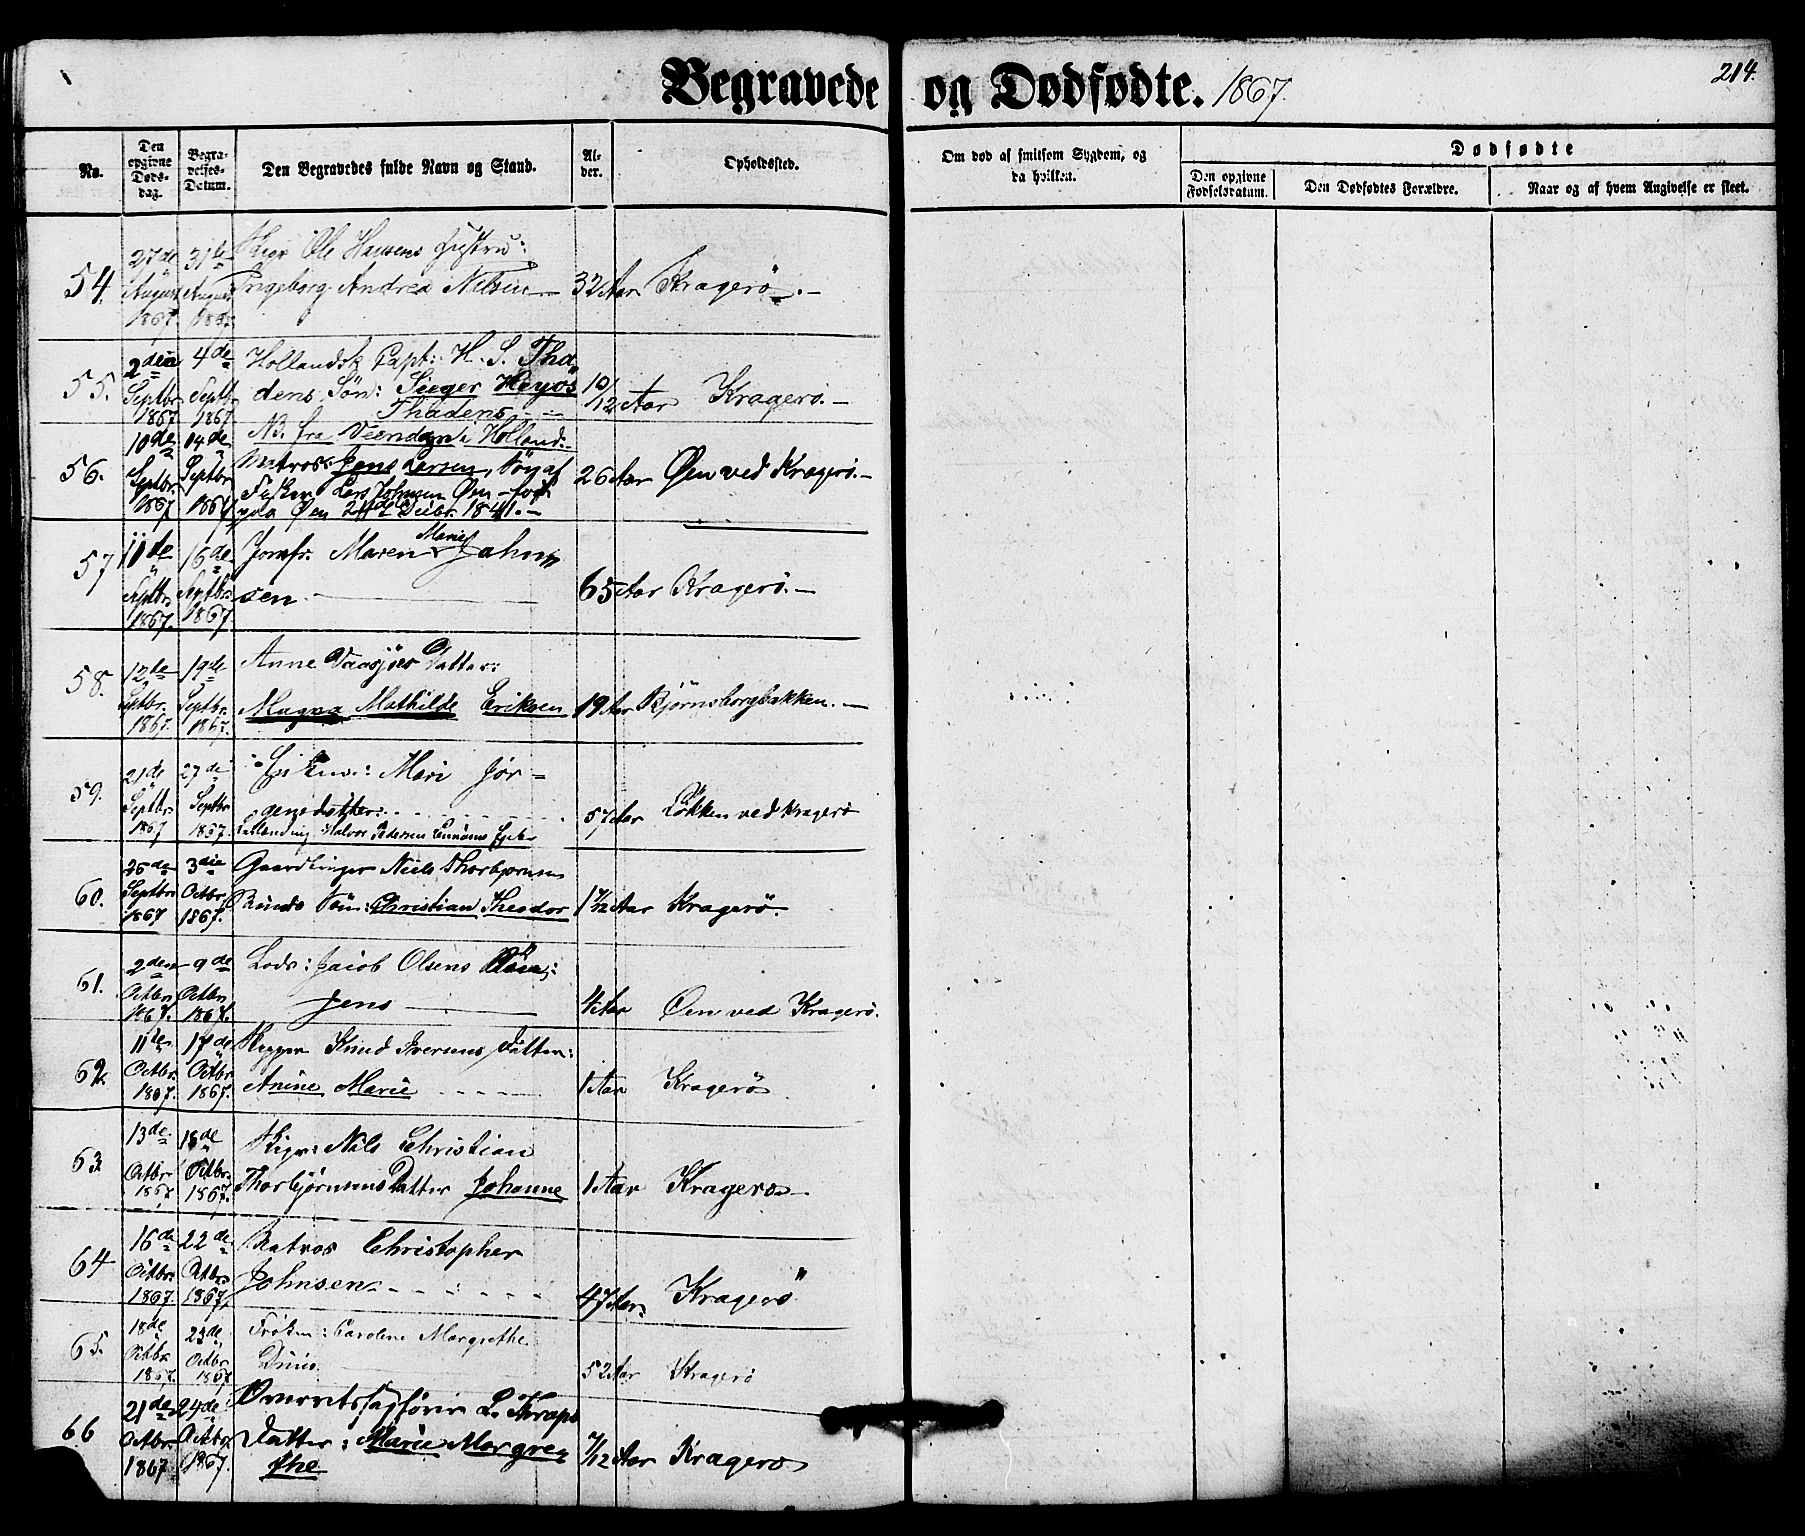 Begravede og Dødfødte. 1867.
214.
No.
Den opgivne Døds-dag.
Begra-velses-Datum.
Den Begravedes fulde Navn og Stand.
Al-der.
Opholdssted.
Om død af smitsom Sygdom, og da hvilken.
Dødfødte
Den opgivne Fødselsdatum.
Den Dødfødtes Forældre.
Naar og af hvem Angivelse er skeet.
54.
27de August 1867.
31te August 1867.
Ole Hansens Hustru:
Ingeborg Andrea Nilsen
32 Aar
Kragerö.
55.
2den Septbr. 1867
4de Septbr. 1867
Hollandsk Capt: H. S. Tha
dens Sön: Sieger Heyos
Thadens
10/12 Aar
Kragerö.
NB. fra Veendam i Holland.
56.
10de Septbr. 1867
14de Septbr. 1867
Matros: Jens Larsen, Sön af
Fisker Lars Johnsen Øen - født
paa Øen 24de Decbr. 1841.
26 Aar
Øen ved Kragerö.
57
11te Septbr. 1867.
16de Septbr. 1867.
Jomfr. Maren Marie John
sen.
65 Aar
Kragerö.
58.
12te Septbr. 1867.
19de Septbr. 1867.
Anne Datter:
Magna Mathilde Eriksen
19 Aar
Bjørnsborgbakken.
59.
21de Septbr. 1867
27de Septbr. 1867.
Mari Jör-
gensdatter.
Halvor Pedersen
57 Aar
Lökken ved Kragerö
60.
25de Septbr. 1867
3die Octbr. 1867.
Gaardbruger Niels Thorbjørnsen
Sön: Christian Theodor
1 Aar
Kragerö.
61.
2den Octbr. 1867.
9de Octbr. 1867.
Lods: Jacob Olsens Sön:
Jens
4 Aar
Øen ved Kragerö.
62.
11te Octbr. 1867.
17de Octbr. 1867.
Skipper Knud Iversens Datter:
Anine Marie
1 Aar
Kragerö
63.
13de Octbr. 1867
18de Octbr. 1867.
Nils Christian
Thorbjørnsens Datter Johanne
1 Aar
Kragerö
64
16de Octbr. 1867.
22de Octbr. 1867.
Matros Christopher
Johnsen.
47 Aar.
Kragerö
65.
18de Octbr. 1867.
23de Octbr. 1867
Fröken: Caroline Margrethe
52 Aar
Kragerö
66
21de Octbr. 1867
24de Octbr. 1867.
Overretssagförer L.
Datter: Marie Margre
the
7/12 Aar
Kragerö